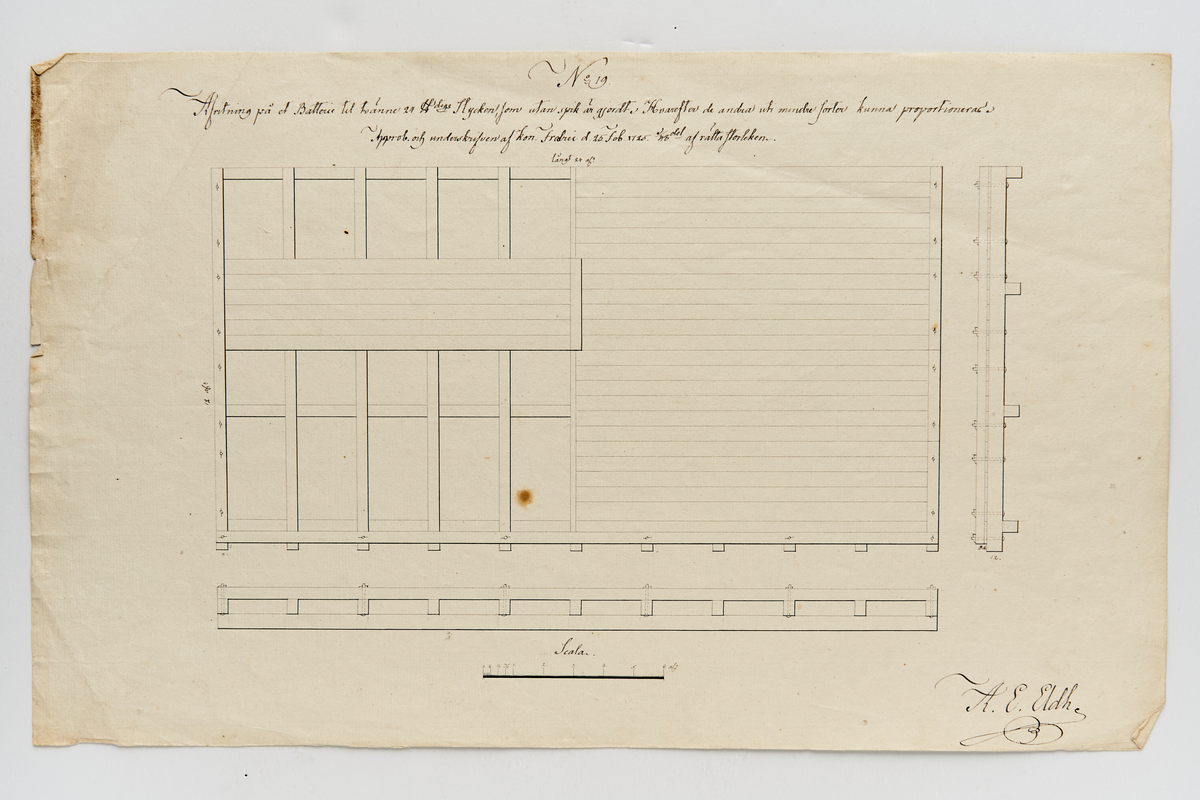 No 19
Afritning på et Batterie til tvänne 24 ℔dige Stycken som utan spik är gjordt, Hvarefter de andra uti mindre sorter kunna proportioneras
Approb. och underskrifven af Kon. Fredric d. 25 Feb. 1725. af rätta storleken.
långt 24 al:
Scala.
A. E. Eldh.